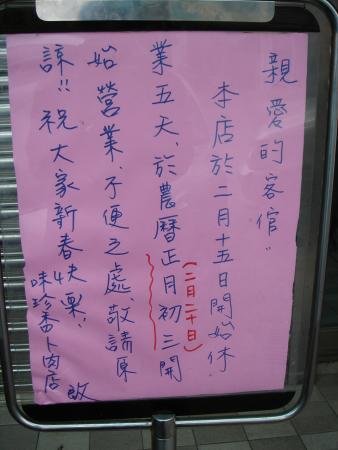 親愛的客倌:
本店於二月十五日開始休
業五天、於農曆正月初三開
(二月二十日)
始營業、不便之處、敬請原
諒!! 祝大家新春快樂!!
味珍香卜肉店 啟